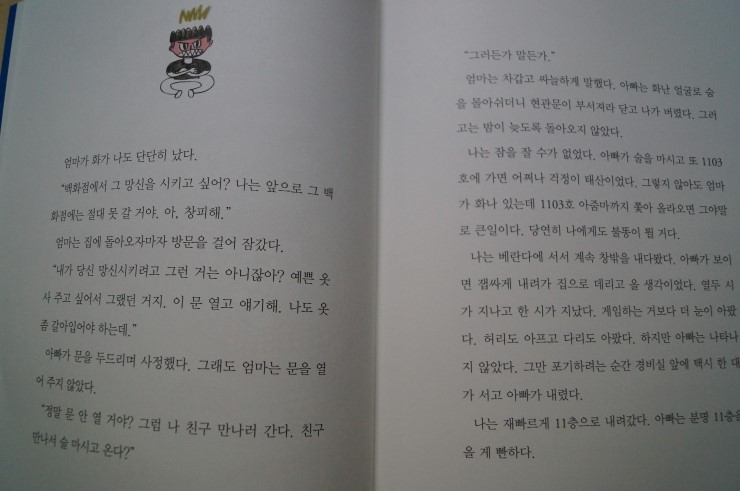 엄마가 화가 나도 단단히 났다.
“백화점에서 그 망신을 시키고 싶어? 나는 앞으로 그 백
화점에는 절대 못 갈 거야. 아, 창피해.”
엄마는 집에 돌아오자마자 방문을 걸어 잠갔다.
“내가 당신 망신시키려고 그런 거는 아니잖아? 예쁜 옷
사 주고 싶어서 그랬던 거지. 이 문 열고 얘기해. 나도 옷
좀 갈아입어야 하는데.”
아빠가 문을 두드리며 사정했다. 그래도 엄마는 문을 열
어 주지 않았다.
“정말 문 안 열 거야? 그럼 나 친구 만나러 간다. 친구
만나서 술 마시고 온다?”
“그러든가 말든가.”
엄마는 차갑고 싸늘하게 말했다. 아빠는 화난 얼굴로 숨
을 몰아쉬더니 현관문이 부서져라 닫고 나가 버렸다. 그러
고는 밤이 늦도록 돌아오지 않았다.
나는 잠을 잘 수가 없었다. 아빠가 술을 마시고 또 1103
호에 가면 어쩌나 걱정이 태산이었다. 그렇지 않아도 엄마
가 화나 있는데 1103호 아줌마까지 쫓아 올라오면 그야말
로 큰일이다. 당연히 나에게도 불똥이 튈 거다.
나는 베란다에 서서 계속 창밖을 내다봤다. 아빠가 보이
면 잽싸게 내려가 집으로 데리고 올 생각이었다. 열두 시
가 지나고 한 시가 지났다. 게임하는 거보다 더 눈이 아팠
다. 허리도 아프고 다리도 아팠다. 하지만 아빠는 나타나
지 않았다. 그만 포기하려는 순간 경비실 앞에 택시 한 대
가 서고 아빠가 내렸다.
나는 재빠르게 11층으로 내려갔다. 아빠는 분명 11층을
을 게 빤하다.